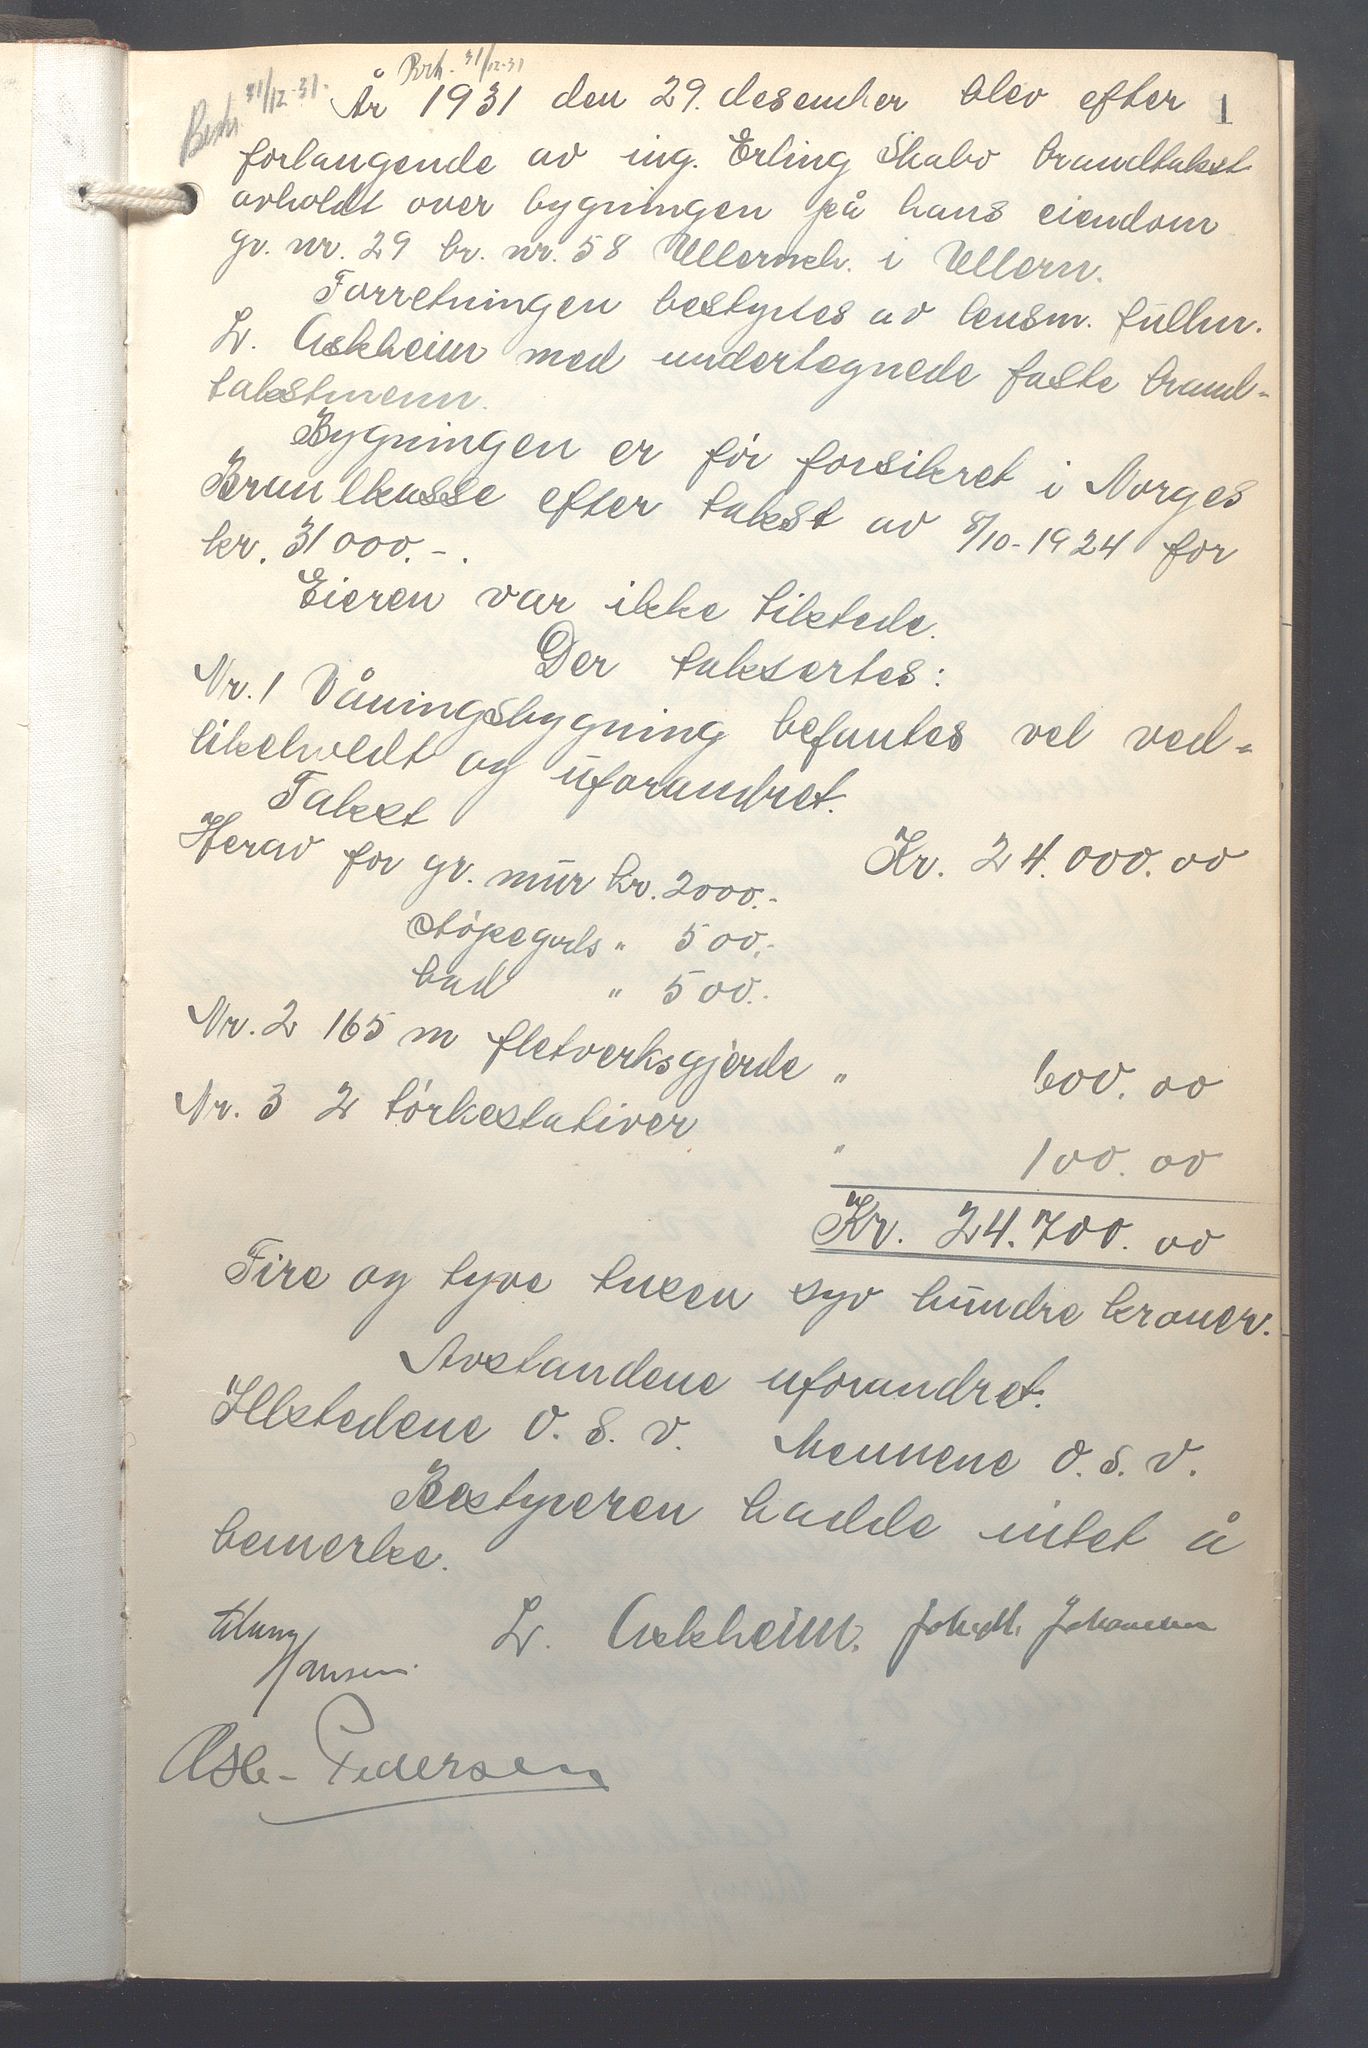 Brk. 31/12-31
Besk. 31/12-31.
År 1931 den 29. desember blev efter 1
forlangende av ing. Erling Skabo brandtakst
avholdt over bygningen på hans eiendom
gr. nr. 29 br. nr. 58 Ullernch. i Ullern.
Forretningen bestyrtes av lensm. fullm.
L. Askheim med undertegnede faste brand-
takstmenn.
Bygningen er før forsikret i Norges
Brandkasse efter takst av 8/10-1924 for
kr. 31000.-.
Eieren var ikke tilstede.
Der taksertes:
Nr. 1 Våningsbygning befantes vel ved-
likeholdt og uforandret.
Takst Kr. 24.000.00
Herav for gr. mur kr. 2000.-
støpegods " 500.-
bad " 500.-
Nr. 2 165 m fletverksgjerde " 600.00
Nr. 3 2 tørkestativer " 100.00
Kr. 24.700.00
Fire og tyve tusen syv hundre kroner.
Avstandene uforandret.
Ildstedene o. s. v. Mennene o. s. v.
Bestyreren hadde intet å
bemerke.
L. Askheim. Johansen
Hansen.
Pedersen